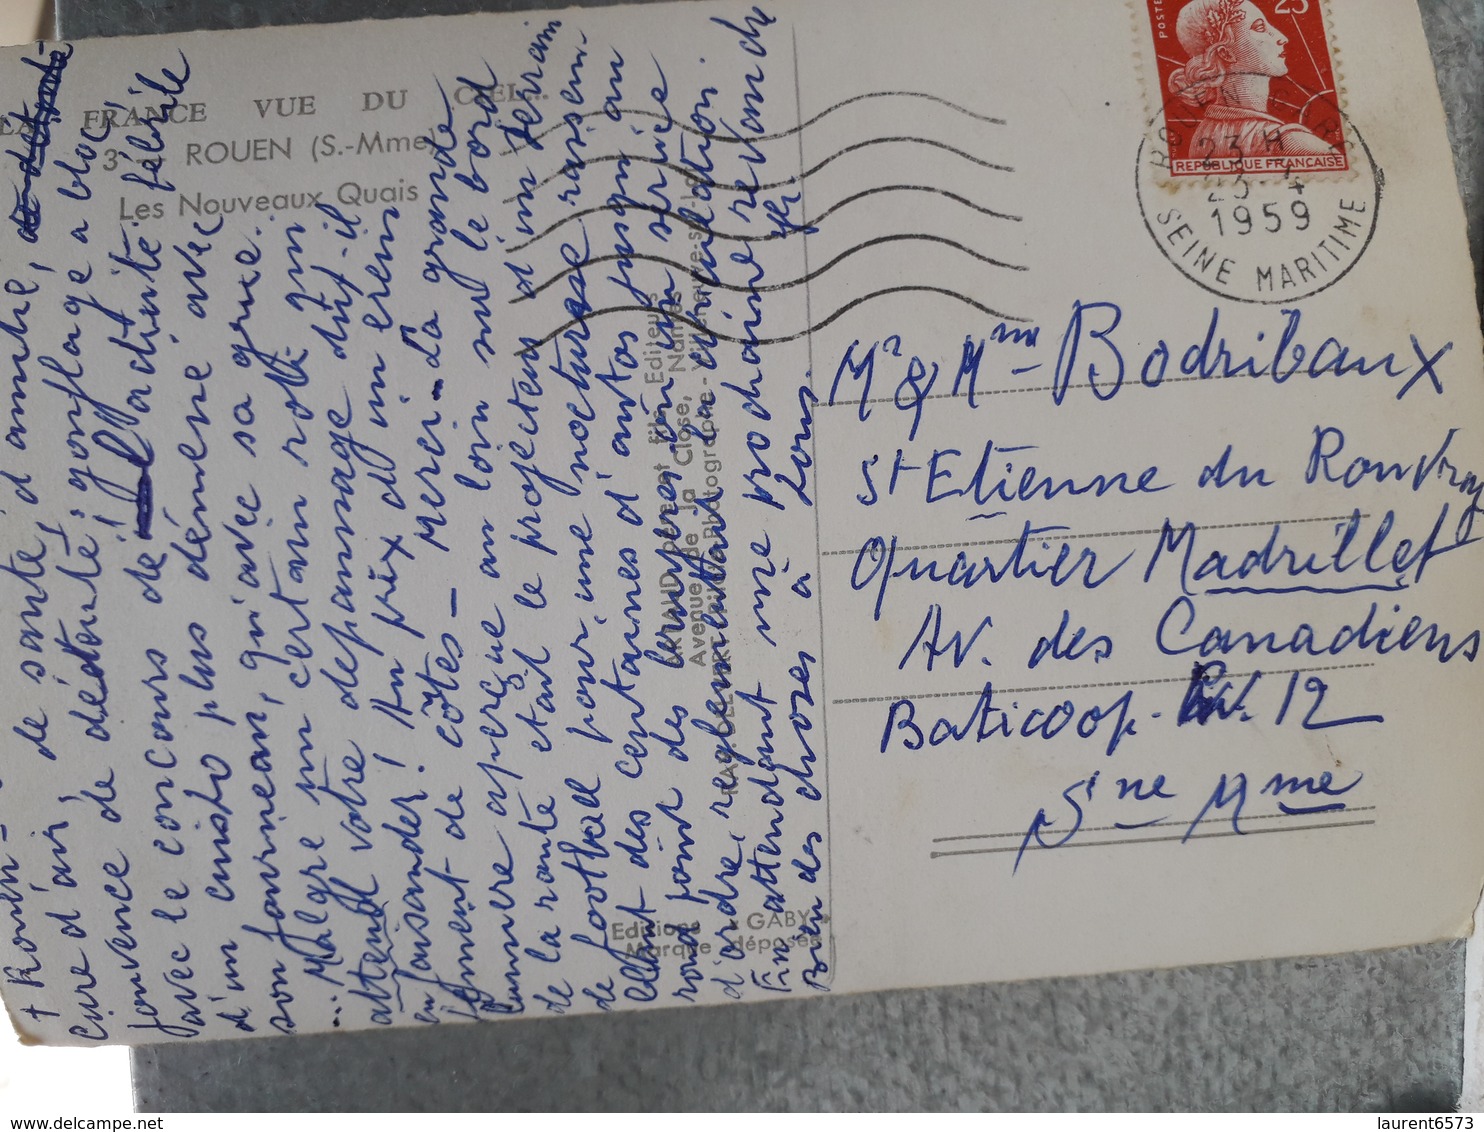 LA FRANCE VUE DU CIEL...
ROUEN (S.-Mme)
Les Nouveaux Quais
+ Rouen -
Cure d'air, de santé, d'amitié,
jouvence de détente! gonflage à bloc
avec le concours de l'activité fébrile
d'un cuisto plus démené avec
son fourneau, qu'avec sa grue.
... Malgré un certain rôti qui
attend votre dépannage dut-il
en faisander! Au prix d'un
de côtes - Merci - La grande
lumière aperçue au loin sur le bord
de la route était le projecteur d'un terrain
de football pour une nocturne
des centaines d'autos jusqu'au
rond point des bruyères où un service
d'ordre, reglementant la circulation.
En attendant une prochaine revanche
Bien des choses à Tous.
ARTAUD père et fils, Editeurs
Avenue de la Close, Nantes
RAY. DELVERT, Pilote-Photographe - Villeneuve-s.-Lot
Edition GABY
Marque déposée
POSTES
25
REPUBLIQUE FRANÇAISE
ROUEN
23 H
1959
SEINE MARITIME
Mr & Mme Bodribaux
St Etienne du Rouvray
Quartier Madrillet
Av. des Canadiens
Baticoop. 12
Sne Mme
laurent6573